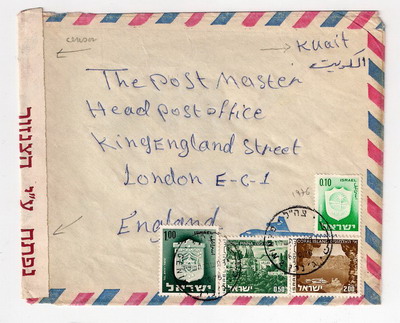 censor
Kuait
الكويت
The Post Master
Head post office
KingEngland Street
London E-C-1
England
1976
0.10
ISRAEL
1.00
ישראל
0.50
ישראל
CORAL ISLAND
2.00
ישראל
נפתח ע"י הצנזור